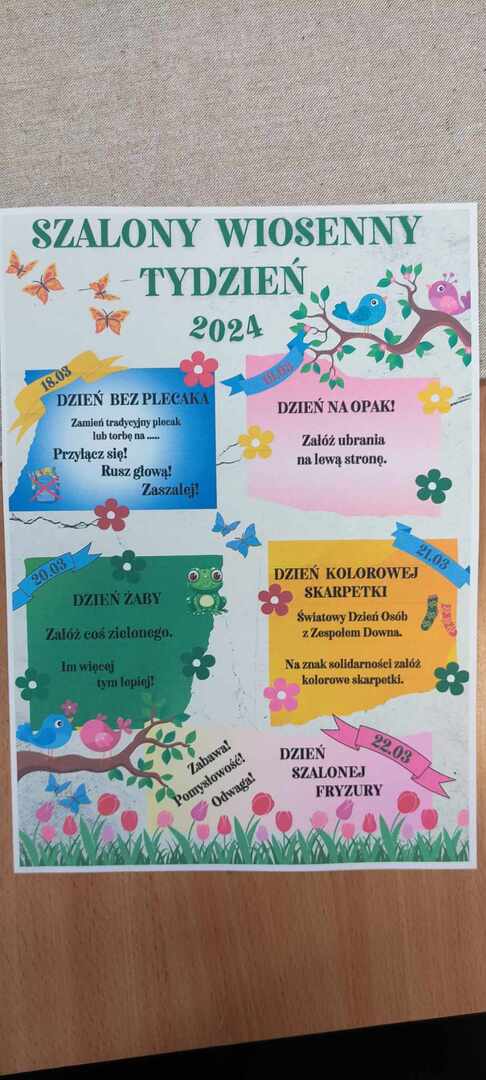 SZALONY WIOSENNY
TYDZIEŃ
2024
18.03
DZIEŃ BEZ PLECAKA
Zamień tradycyjny plecak
lub torbę na .....
Przyłącz się!
Rusz głową!
Zaszalej!
19.03
DZIEŃ NA OPAK!
Załóż ubrania
na lewą stronę.
20.03
DZIEŃ ŻABY
Załóż coś zielonego.
Im więcej
tym lepiej!
21.03
DZIEŃ KOLOROWEJ
SKARPETKI
Światowy Dzień Osób
z Zespołem Downa.
Na znak solidarności załóż
kolorowe skarpetki.
22.03
Zabawa!
Pomysłowość!
Odwaga!
DZIEŃ
SZALONEJ
FRYZURY